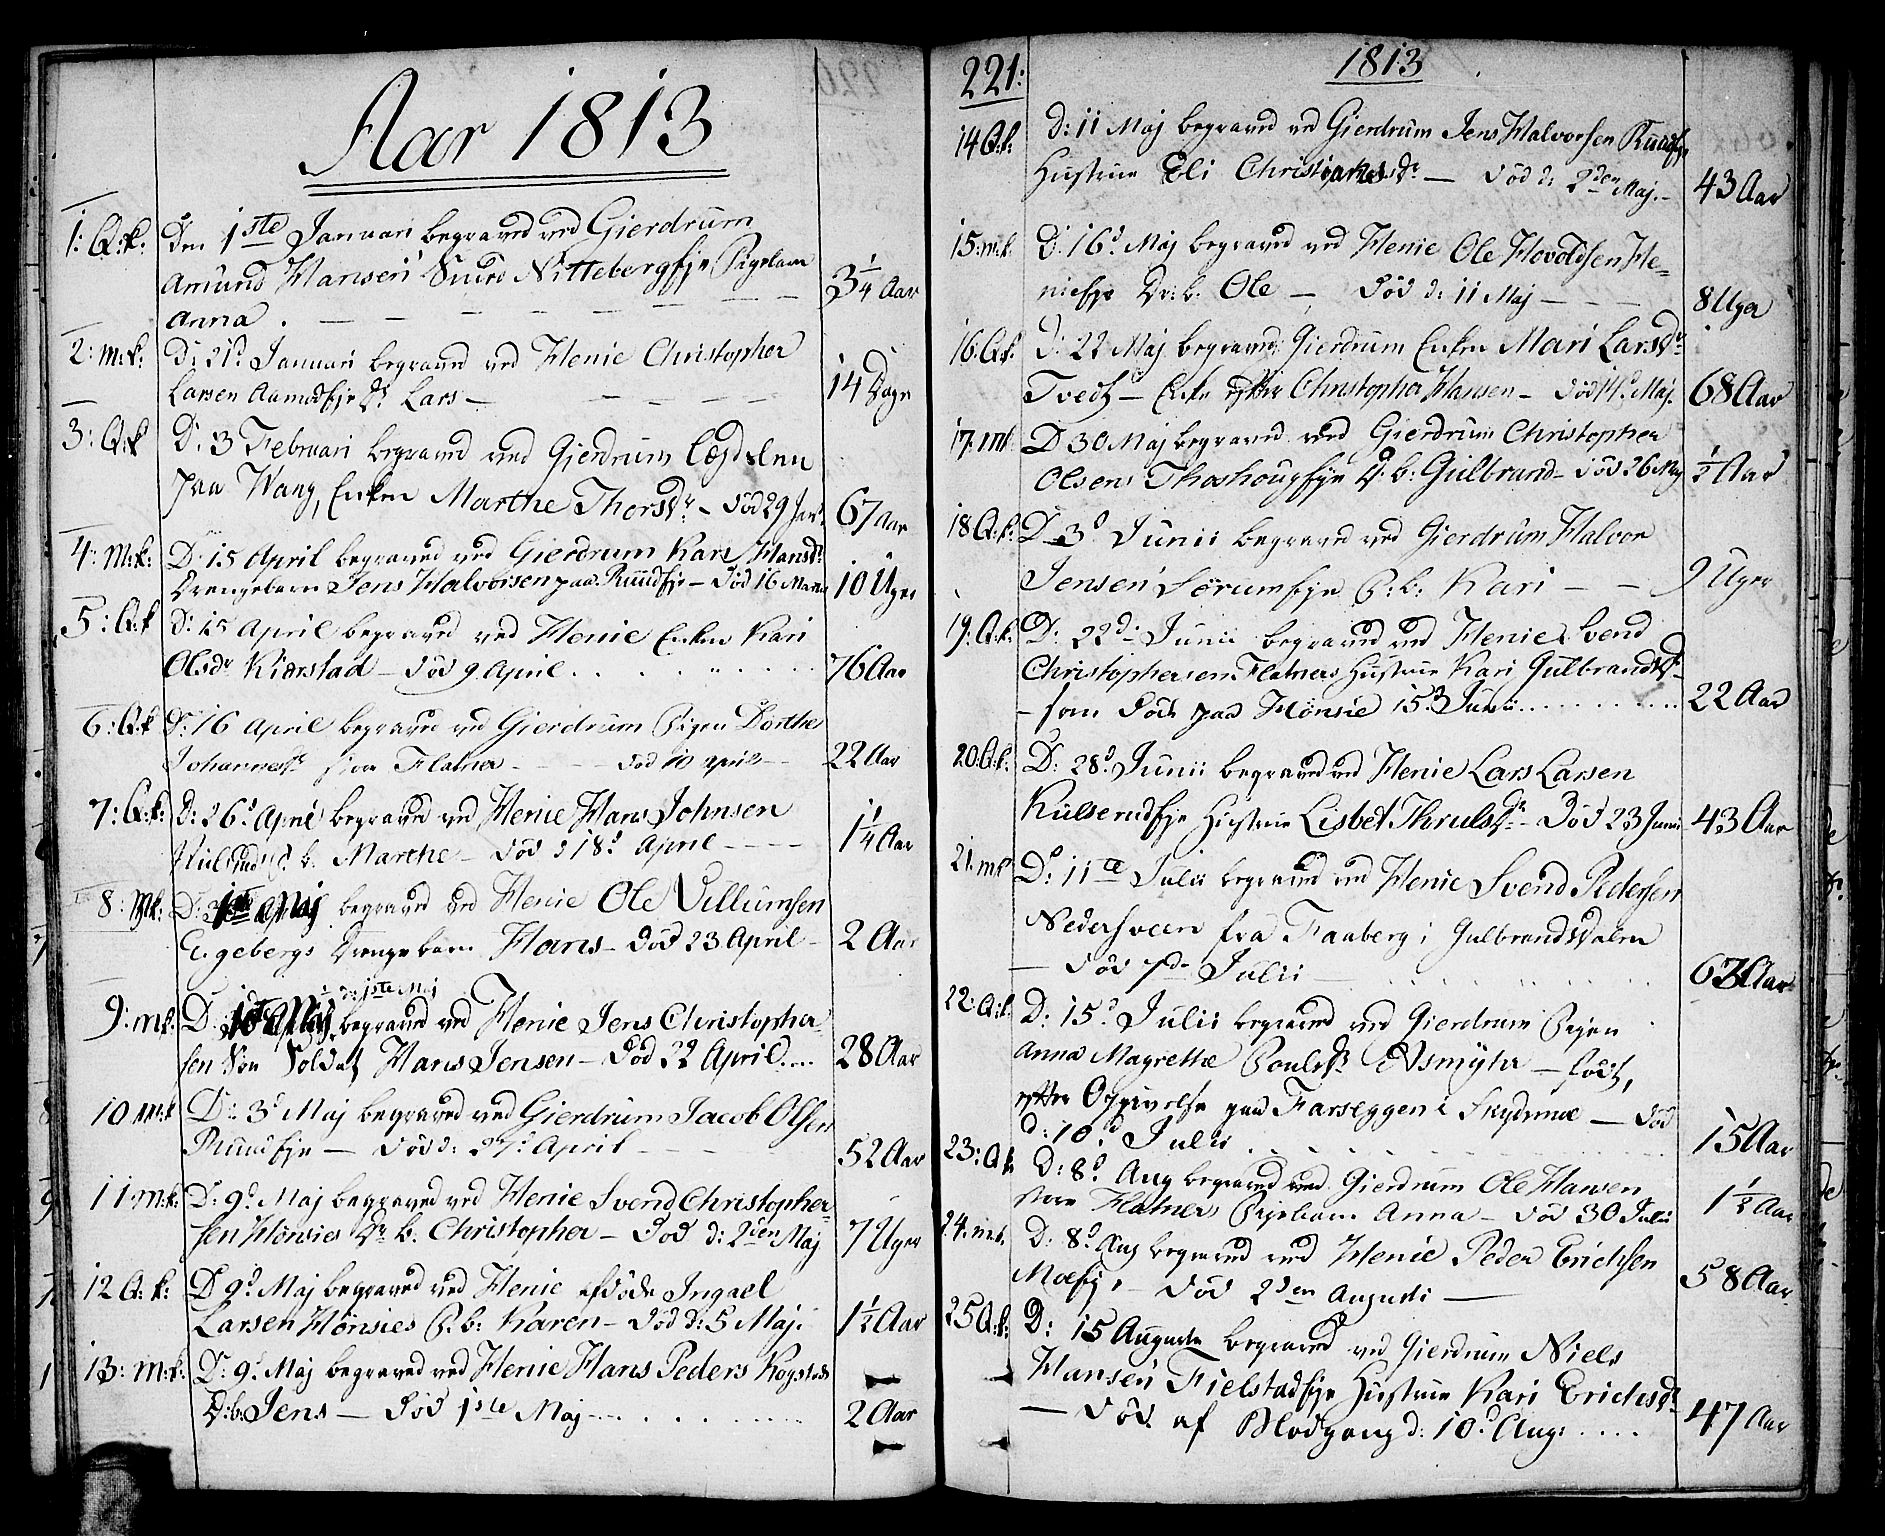 Aar 1813
1: Q:k:
Den 1ste Januari begraved ved Gierdrum
Amund Hansen Nittebergeje Pigebarn
Anna . — — — — —
3 1/4 Aar
2: M:k:
D: 21d Januari begraved ved Henie Christopher
Larsen Aamudeje Dr Lars —
14 Dage
3: Q:k
D: 3 Februari begraved ved Gierdrum Lægdslem
paa Wang, Enken Marthe Thorsdr – død 29 Jan:
67 Aar
4: M:k:
D: 15 April begraved ved Gierdrum Kari Hansdr
Drengebarn Jens Halvorsen paa Ruudeje – død 16 Martii
10 Uger
5: Q:k
D: 15 April begraved ved Henie Enken Kari
Olsdr Kiørstad – død 9 April . . . .
76 Aar
6: Q:k
D: 16 April begraved ved Gierdrum Pigen Dorthe
Johannesdr Flatner – – – død 10 April –
22 Aar
7: Q:k:
D: 26d April begraved ved Henie Hans Johnsen
Kulsrud P. b. Marthe – død d 18d April – – –
1 1/4 Aar
8: Mk:
D: begraved ved Henie Ole Villumsen
Egebergs Drengebarn Hans – død 23 April –
2 Aar
9: Mk:
d: 1ste Maj
D. begraved ved Henie Jens Christopher-
sen Søn Soldat Hans Jensen – død 22 April....
28 Aar
10 M:k
D: 3d Maj begraved ved Gierdrum Jacob Olsen
Ruudeje — død d: 27d April – – –
52 Aar
11: M:k:
D: 9d Maj begraved ved Henie Svend Christopher-
sen Hønsies Dr. b. Christopher – død d: 2den Maj
7 Uger
12 Q: k:
D 9d Maj begraved ved Henie afdøde Ingael
Larsen Hønsies P.b: Karen – død d: 5 Maj.
1 1/2 Aar
13: M:k:
D: 9d Maj begraved ved Henie Hans Peders Kogstad
D:b: Jens — død 1ste Maj – . . . .
2 Aar
221:
1813
14 Q:k:
D: 11 Maj begraved ved Gierdrum Jens Halvorsen Ruudeje
Hustrue Eli Christiansdr — død d: 2den Maj. –
43 Aar
15: m:k:
D: 16d Maj begraved ved Henie Ole Hovoldsen He-
nieeje Dr: b. Ole — død d: 11 Maj – – –
8 Uger
16: Q:k:
D: 22 Maj begraved Gierdrum Enken Mari Larsdr
Tvedt – Enke efter Christopher Hansen – død 14d Maj.
68 Aar
17: mk
D 30 Maj begraved ved Gierdrum Christopher
Olsens Thoshougeje D: b: Gulbrand – død 26 Maj
1/2 Aar
18 Q:k:
D 3d Junii begraved ved Gierdrum Halvor
Jensen Sørumeje P: b: Kari – –
9 Uger
19: Q:k:
D: 22d: Junii begraved ved Henie Svend
Christophersen Flatners Hustrue Kari Gulbrandsdr
– som døde paa Hønsie 15d Junii . . . . . . .
22 Aar
20: Q:k:
D: 28d Junii begraved ved Henie Lars Larsen
Kulserudeje Hustrue Lisbet Thrulsdr – død 23 Junii
43 Aar
21: mk
D: 11te Julii begraved ved Henie Svend Pedersen
Nedersveen fra Faaberg i Gulbrandsdalen
— død 7de Julii — . . . . .
62 Aar
22: Q:k:
D: 15d Julii begraved ved Gierdrum Pigen
Anna Magrethe Poulsdr Asmyhr – født,
efter Opgivelse paa Farseggen i Skydsmoe — død
d: 10d Julii . . . . . .
15 Aar
23: Q:k
D: 8d Aug begraved ved Gierdrum Ole Hansen
store Flatners Pigebarn Anna – død 30 Julii
1 1/2 Aar
24. m:k.
D: 8d Aug begraved ved Henie Peder Erichsen
Moeeje – død 2den Augusti —
58 Aar
25 Q:k:
D: 15 Augusti begraved ved Gierdrum Niels
Hansen Fielstadeje Hustrue Kari Erichsdr
— død af Blodgang d: 10d Aug: . . . .
47 Aar